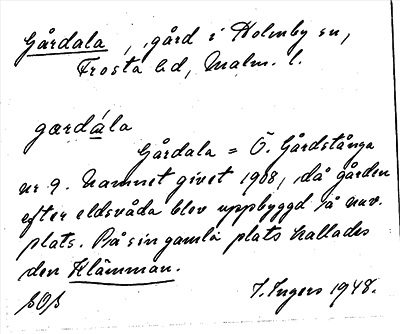 Gårdala, gård i Holmby sn,
Frosta hd, Malm. l.
gærdála
Gårdala = Ö. Gårdstånga
nr 9. Namnet givet 1908, då gården
efter eldsvåda blev uppbyggd på nuv.
plats. På sin gamla plats kallades
den Klämman.
I. Ingers 1948.